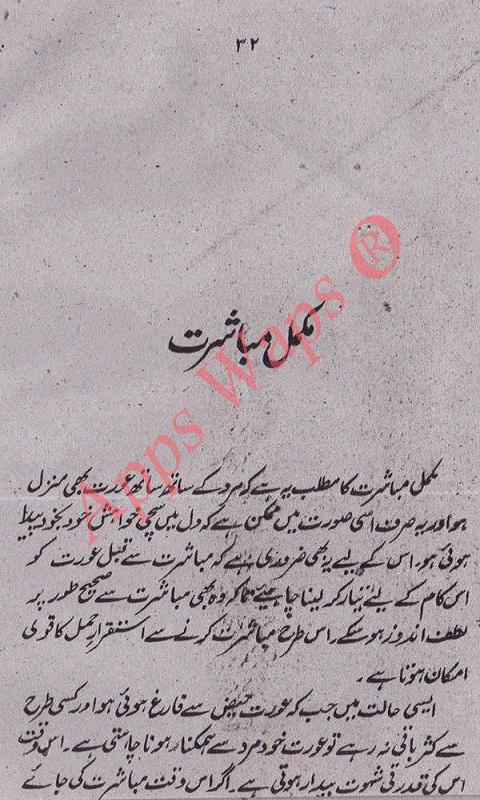 ۳۲
مکمل مباشرت
مکمل مباشرت کا مطلب یہ ہے کہ مرد کے ساتھ ساتھ عورت بھی منزل
ہو اور یہ صرف اسی صورت میں ممکن ہے کہ دل میں سچی خواہش خود بخود پیدا
ہوئی ہو۔ اس کے لیے یہ بھی ضروری ہے کہ مباشرت سے قبل عورت کو
اس کام کے لیئے تیار کر لینا چاہیئے تاکہ وہ بھی مباشرت سے صحیح طور پر
لطف اندوز ہو سکے۔ اس طرح مباشرت کرنے سے استقرارِ حمل کا قوی
امکان ہوتا ہے۔
ایسی حالت میں جب کہ عورت حیض سے فارغ ہوئی ہو اور کسی طرح
سے کثر باقی نہ رہے تو عورت خود مرد سے ہمکنار ہونا چاہتی ہے۔ اس وقت
اس کی قدرتی شہوت بیدار ہوتی ہے۔ اگر اس وقت مباشرت کی جائے
Apps Waps ®